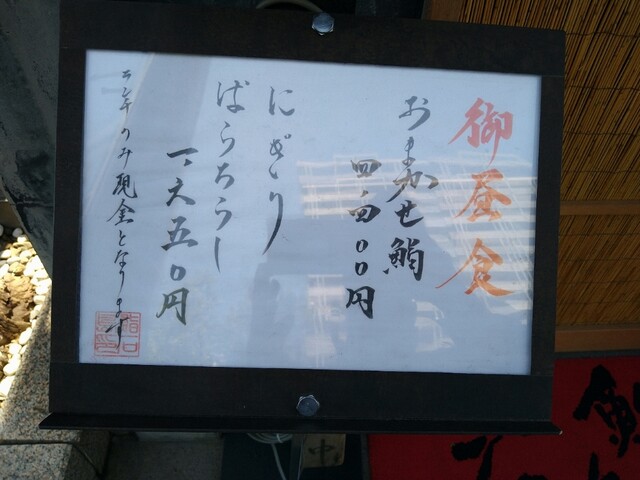 御昼食
おまかせ鮨
四、四〇〇円
にぎり
ばらちらし
一、六五〇円
ランチのみ現金となります
中